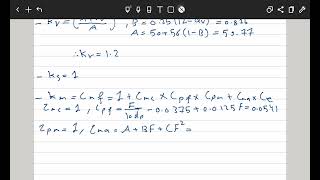 - Kv = (A+√v / A) , B = 0.25(12-Qv) = 0.826
A = 50+56(1-B) = 59.77
∴ Kv = 1.2
- Ks = 1
- Km = Cmf = 1 + Cmc × Cpf × Cpm + Cma × Ce
Cmc = 1 , Cpf = F/10dp - 0.0375 + 0.0125F = 0.0541
Cpm = 1 , Cma = A + BF + CF² =